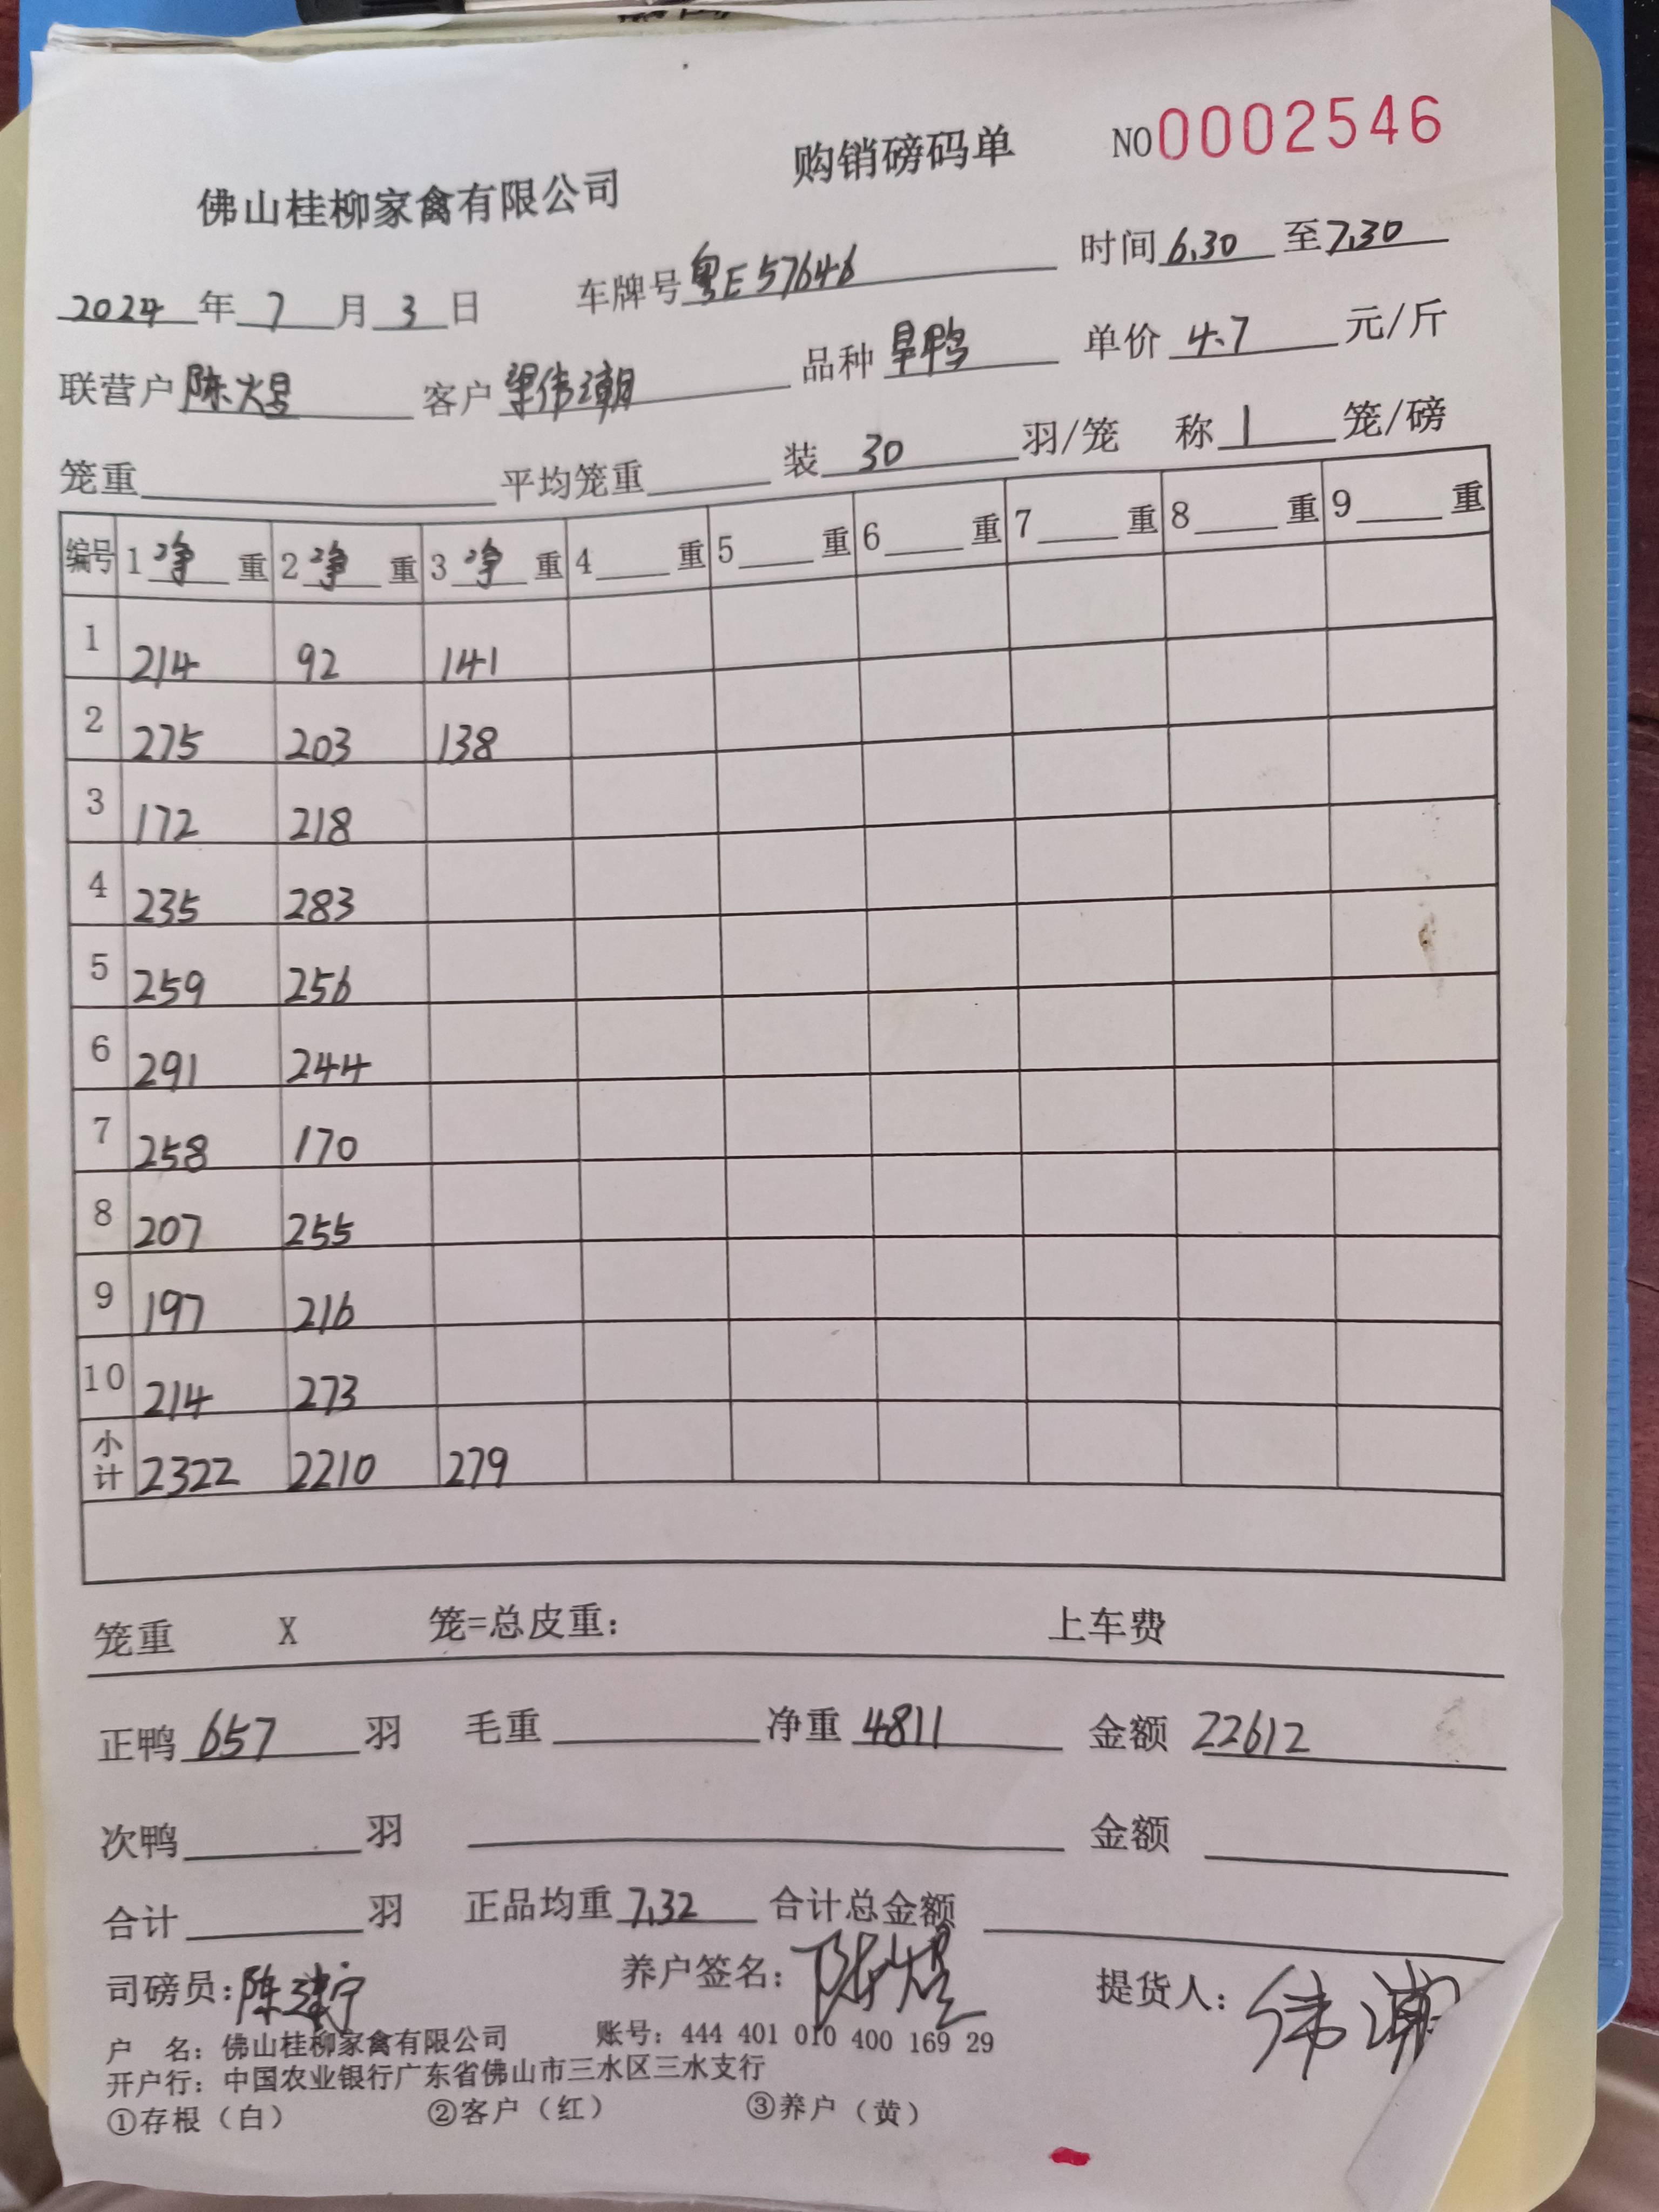 购销磅码单 NO0002546
佛山桂柳家禽有限公司
2024年7月3日 车牌号粤E57646 时间6.30至7.30
联营户陈火昱 客户梁伟潮 品种旱鸭 单价4.7元/斤
笼重 平均笼重 装30羽/笼 称1笼/磅
编号 1净重 2净重 3净重 4重 5重 6重 7重 8重 9重
1 214 92 141
2 275 203 138
3 172 218
4 235 283
5 259 256
6 291 244
7 258 170
8 207 255
9 197 216
10 214 273
小计 2322 2210 279
笼重 X 笼=总皮重: 上车费
正鸭657羽 毛重 净重4811 金额22612
次鸭 羽 金额
合计 羽 正品均重7.32 合计总金额
司磅员:陈 养户签名: 提货人:伟潮
户 名: 佛山桂柳家禽有限公司 账号: 444 401 010 400 169 29
开户行: 中国农业银行广东省佛山市三水区三水支行
①存根（白） ②客户（红） ③养户（黄）